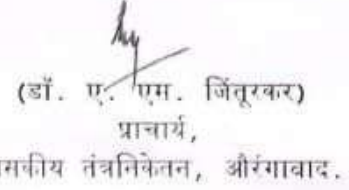 (डॉ. ए. एम. जिंतूरकर)
प्राचार्य,
तंत्रनिकेतन, औरंगाबाद.